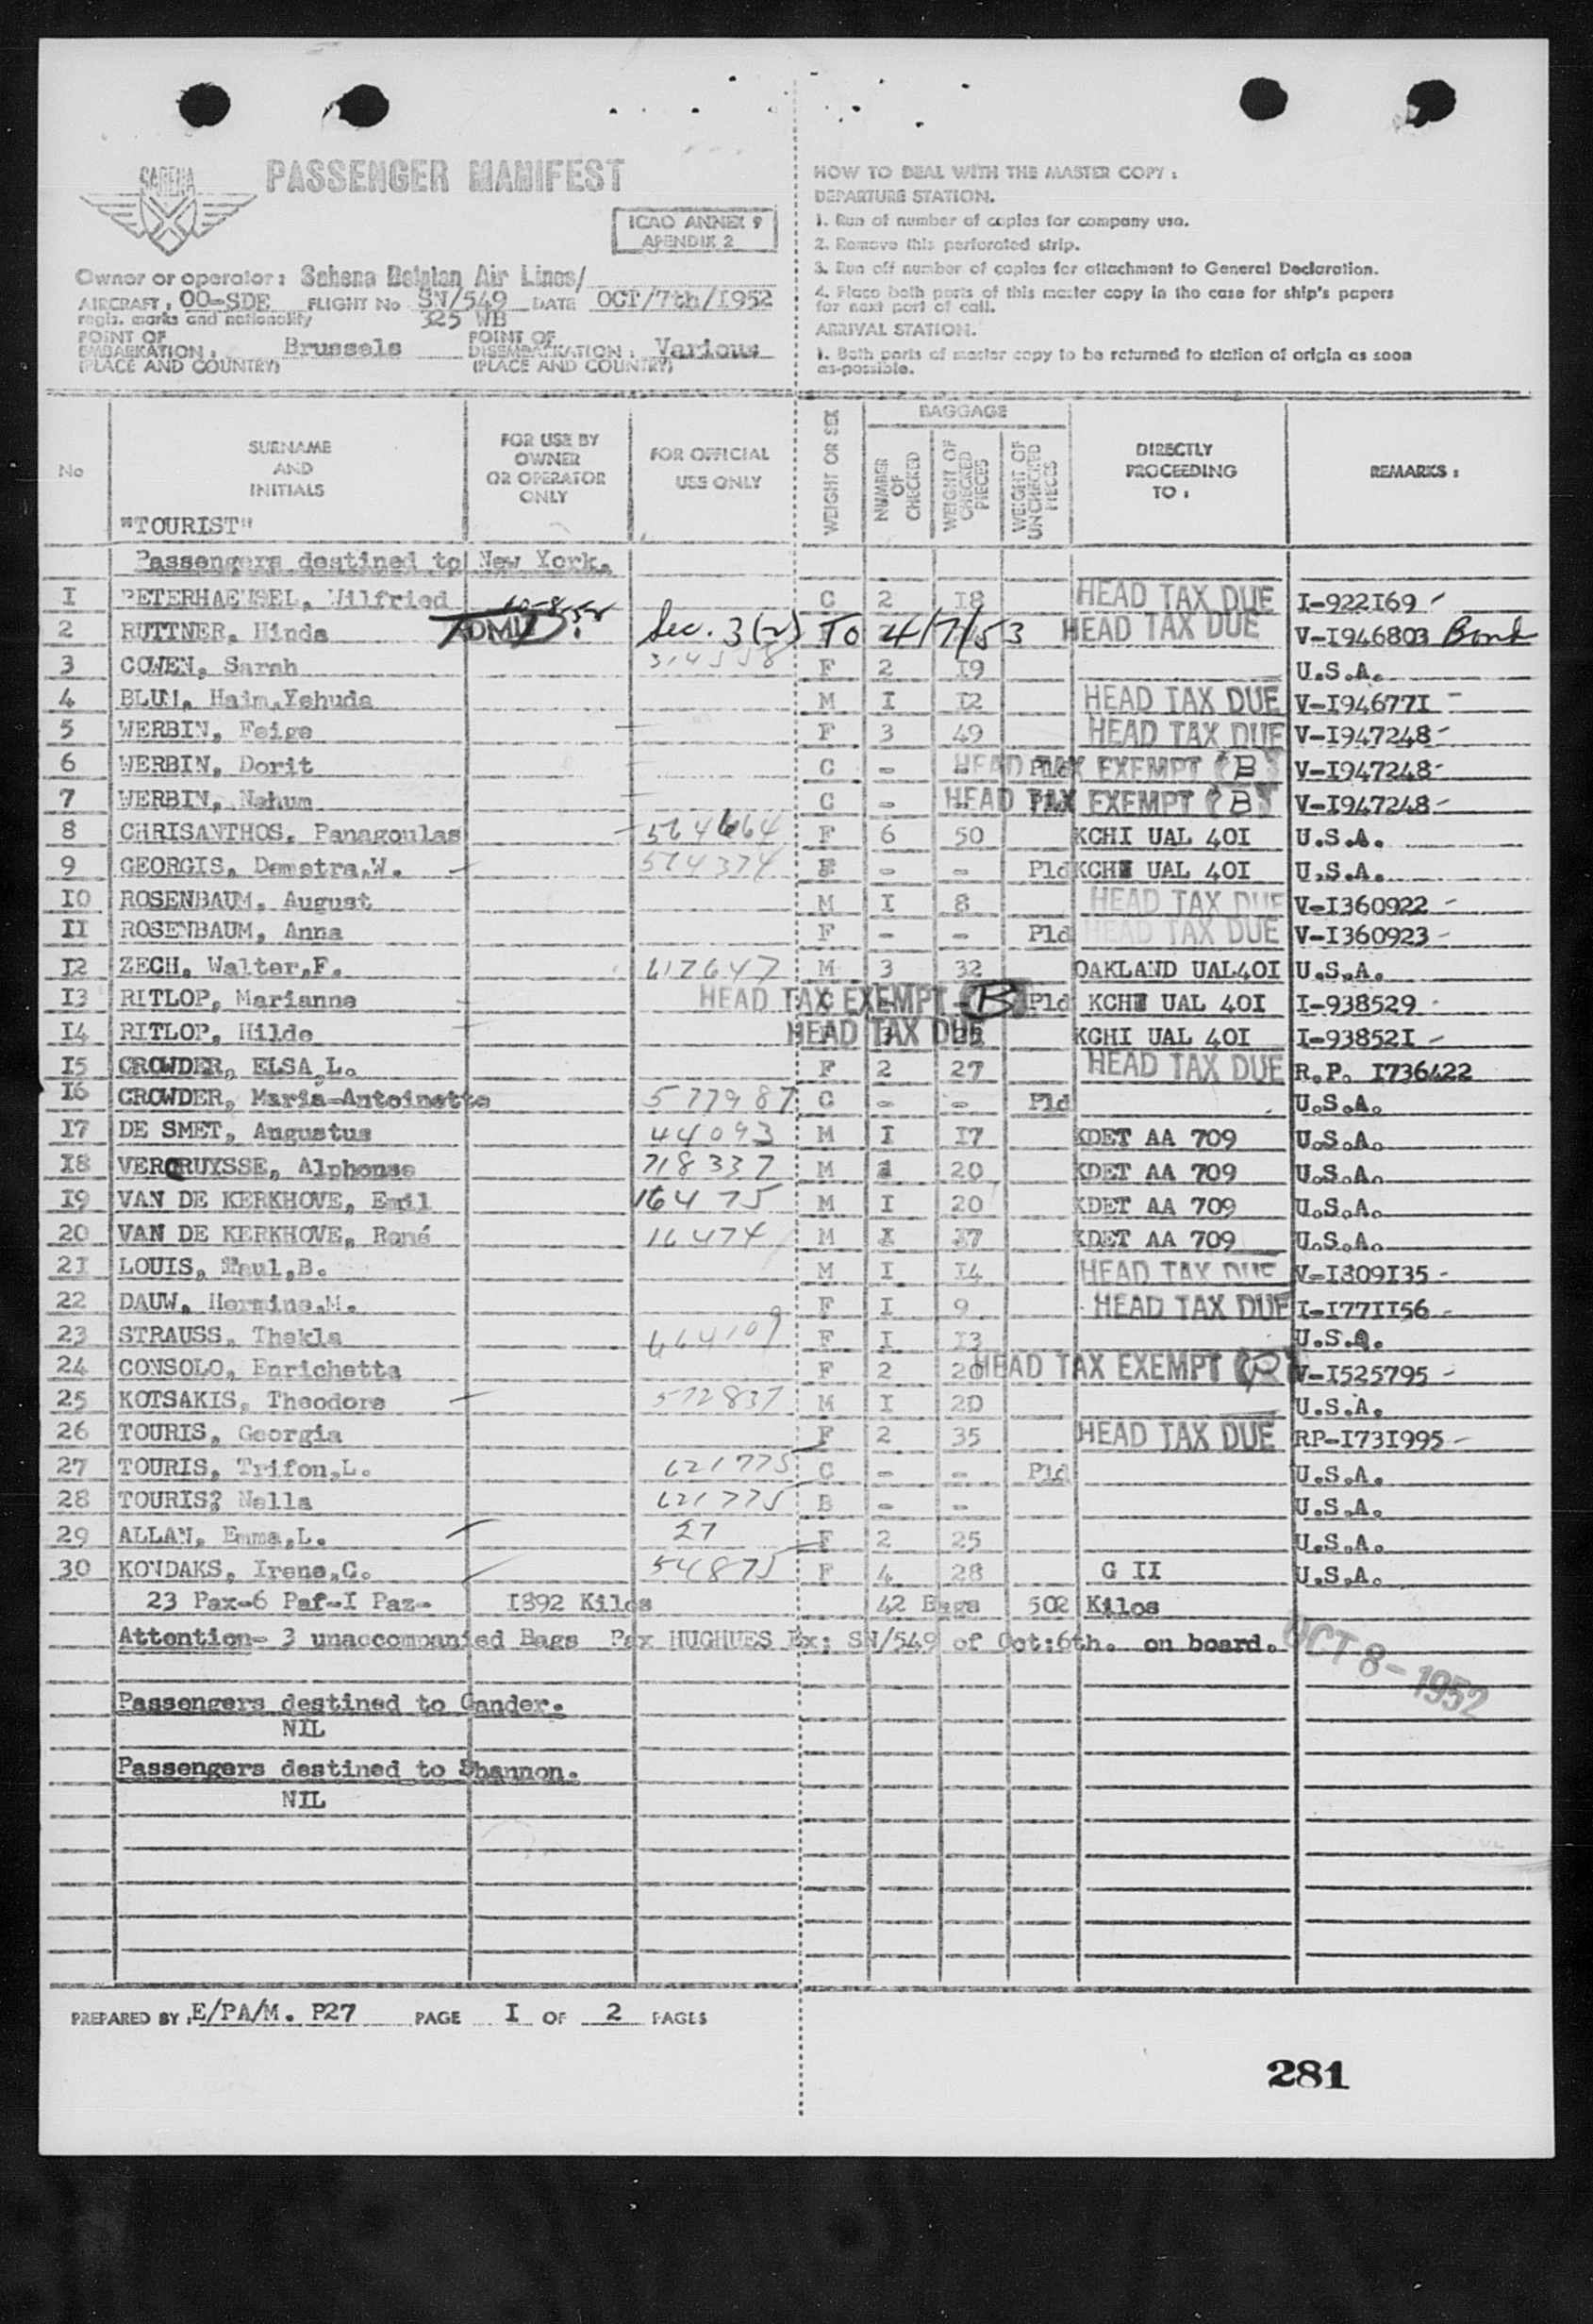 SABENA
PASSENGER MANIFEST
ICAO ANNEX 9
APENDIX 2
Owner or operator: Sabena Belgian Air Lines/
AIRCRAFT: OO-SDE FLIGHT No SN/549 DATE OCT/7th/1952
regis. marks and nationality 325 WB
POINT OF EMBARKATION: Brussels POINT OF DISEMBARKATION: Various
(PLACE AND COUNTRY) (PLACE AND COUNTRY)
HOW TO DEAL WITH THE MASTER COPY:
DEPARTURE STATION.
1. Run of number of copies for company use.
2. Remove this perforated strip.
3. Run off number of copies for attachment to General Declaration.
4. Place both parts of this master copy in the case for ship's papers
for next port of call.
ARRIVAL STATION.
1. Both parts of master copy to be returned to station of origin as soon
as-possible.
No SURNAME AND INITIALS FOR USE BY OWNER OR OPERATOR ONLY FOR OFFICIAL USE ONLY WEIGHT OR SEX BAGGAGE NUMBER OF CHECKED WEIGHT OF CHECKED PIECES WEIGHT OF UNCHECKED PIECES DIRECTLY PROCEEDING TO: REMARKS:
"TOURIST"
Passengers destined to New York.
I PETERHAENSEL, Wilfried C 2 I8 HEAD TAX DUE I-922I69
2 RUTTNER, Hinda 10-8-52 ADMITD. Sec. 3(2) TO 4/7/53 HEAD TAX DUE V-I946803 Bond
3 COWEN, Sarah 314558 F 2 I9 U.S.A.
4 BLUM, Haim,Yehuda M I I2 HEAD TAX DUE V-I94677I
5 WERBIN, Feige F 3 49 HEAD TAX DUE V-I947248
6 WERBIN, Dorit C - - Pld HEAD TAX EXEMPT (B) V-I947248
7 WERBIN, Nahum C - - Pld HEAD TAX EXEMPT (B) V-I947248
8 CHRISANTHOS, Panagoulas 564664 F 6 50 KCHI UAL 40I U.S.A.
9 GEORGIS, Demetra,W. 564374 F - - Pld KCHI UAL 40I U.S.A.
I0 ROSENBAUM, August M I 8 HEAD TAX DUE V-I360922
II ROSENBAUM, Anna F - - Pld HEAD TAX DUE V-I360923
I2 ZECH, Walter,F. 617647 M 3 32 OAKLAND UAL40I U.S.A.
I3 RITLOP, Marianne HEAD TAX EXEMPT (B) C - Pld KCHI UAL 40I I-938529
I4 RITLOP, Hilde HEAD TAX DUE KCHI UAL 40I I-93852I
I5 CROWDER, ELSA,L. F 2 27 HEAD TAX DUE R.P. I736422
I6 CROWDER, Maria-Antoinette 577987 C - - Pld U.S.A.
I7 DE SMET, Augustus 44093 M I I7 KDET AA 709 U.S.A.
I8 VERCRUYSSE, Alphonse 718337 M I 20 KDET AA 709 U.S.A.
I9 VAN DE KERKHOVE, Emil 16475 M I 20 KDET AA 709 U.S.A.
20 VAN DE KERKHOVE, René 16474 M I 37 KDET AA 709 U.S.A.
2I LOUIS, Paul,B. M I I4 HEAD TAX DUE V-I809I35
22 DAUW, Hermine,M. F I 9 HEAD TAX DUE I-I77II56
23 STRAUSS, Thekla 664109 F I I3 U.S.A.
24 CONSOLO, Enrichetta F 2 20 HEAD TAX EXEMPT (R) V-I525795
25 KOTSAKIS, Theodore 572837 M I 20 U.S.A.
26 TOURIS, Georgia F 2 35 HEAD TAX DUE RP-I73I995
27 TOURIS, Trifon,L. 621775 C - - Pld U.S.A.
28 TOURIS? Nella 621775 B - - U.S.A.
29 ALLAN, Emma,L. 27 F 2 25 U.S.A.
30 KONDAKS, Irene,C. 54875 F 4 28 G II U.S.A.
23 Pax-6 Paf-I Paz- I892 Kilos 42 Bags 502 Kilos
Attention- 3 unaccompanied Bags Pax HUGHUES Ex: SN/549 of Oct:6th. on board.
OCT 8-1952
Passengers destined to Gander.
NIL
Passengers destined to Shannon.
NIL
PREPARED BY: E/PA/M. P27 PAGE I OF 2 PAGES
281